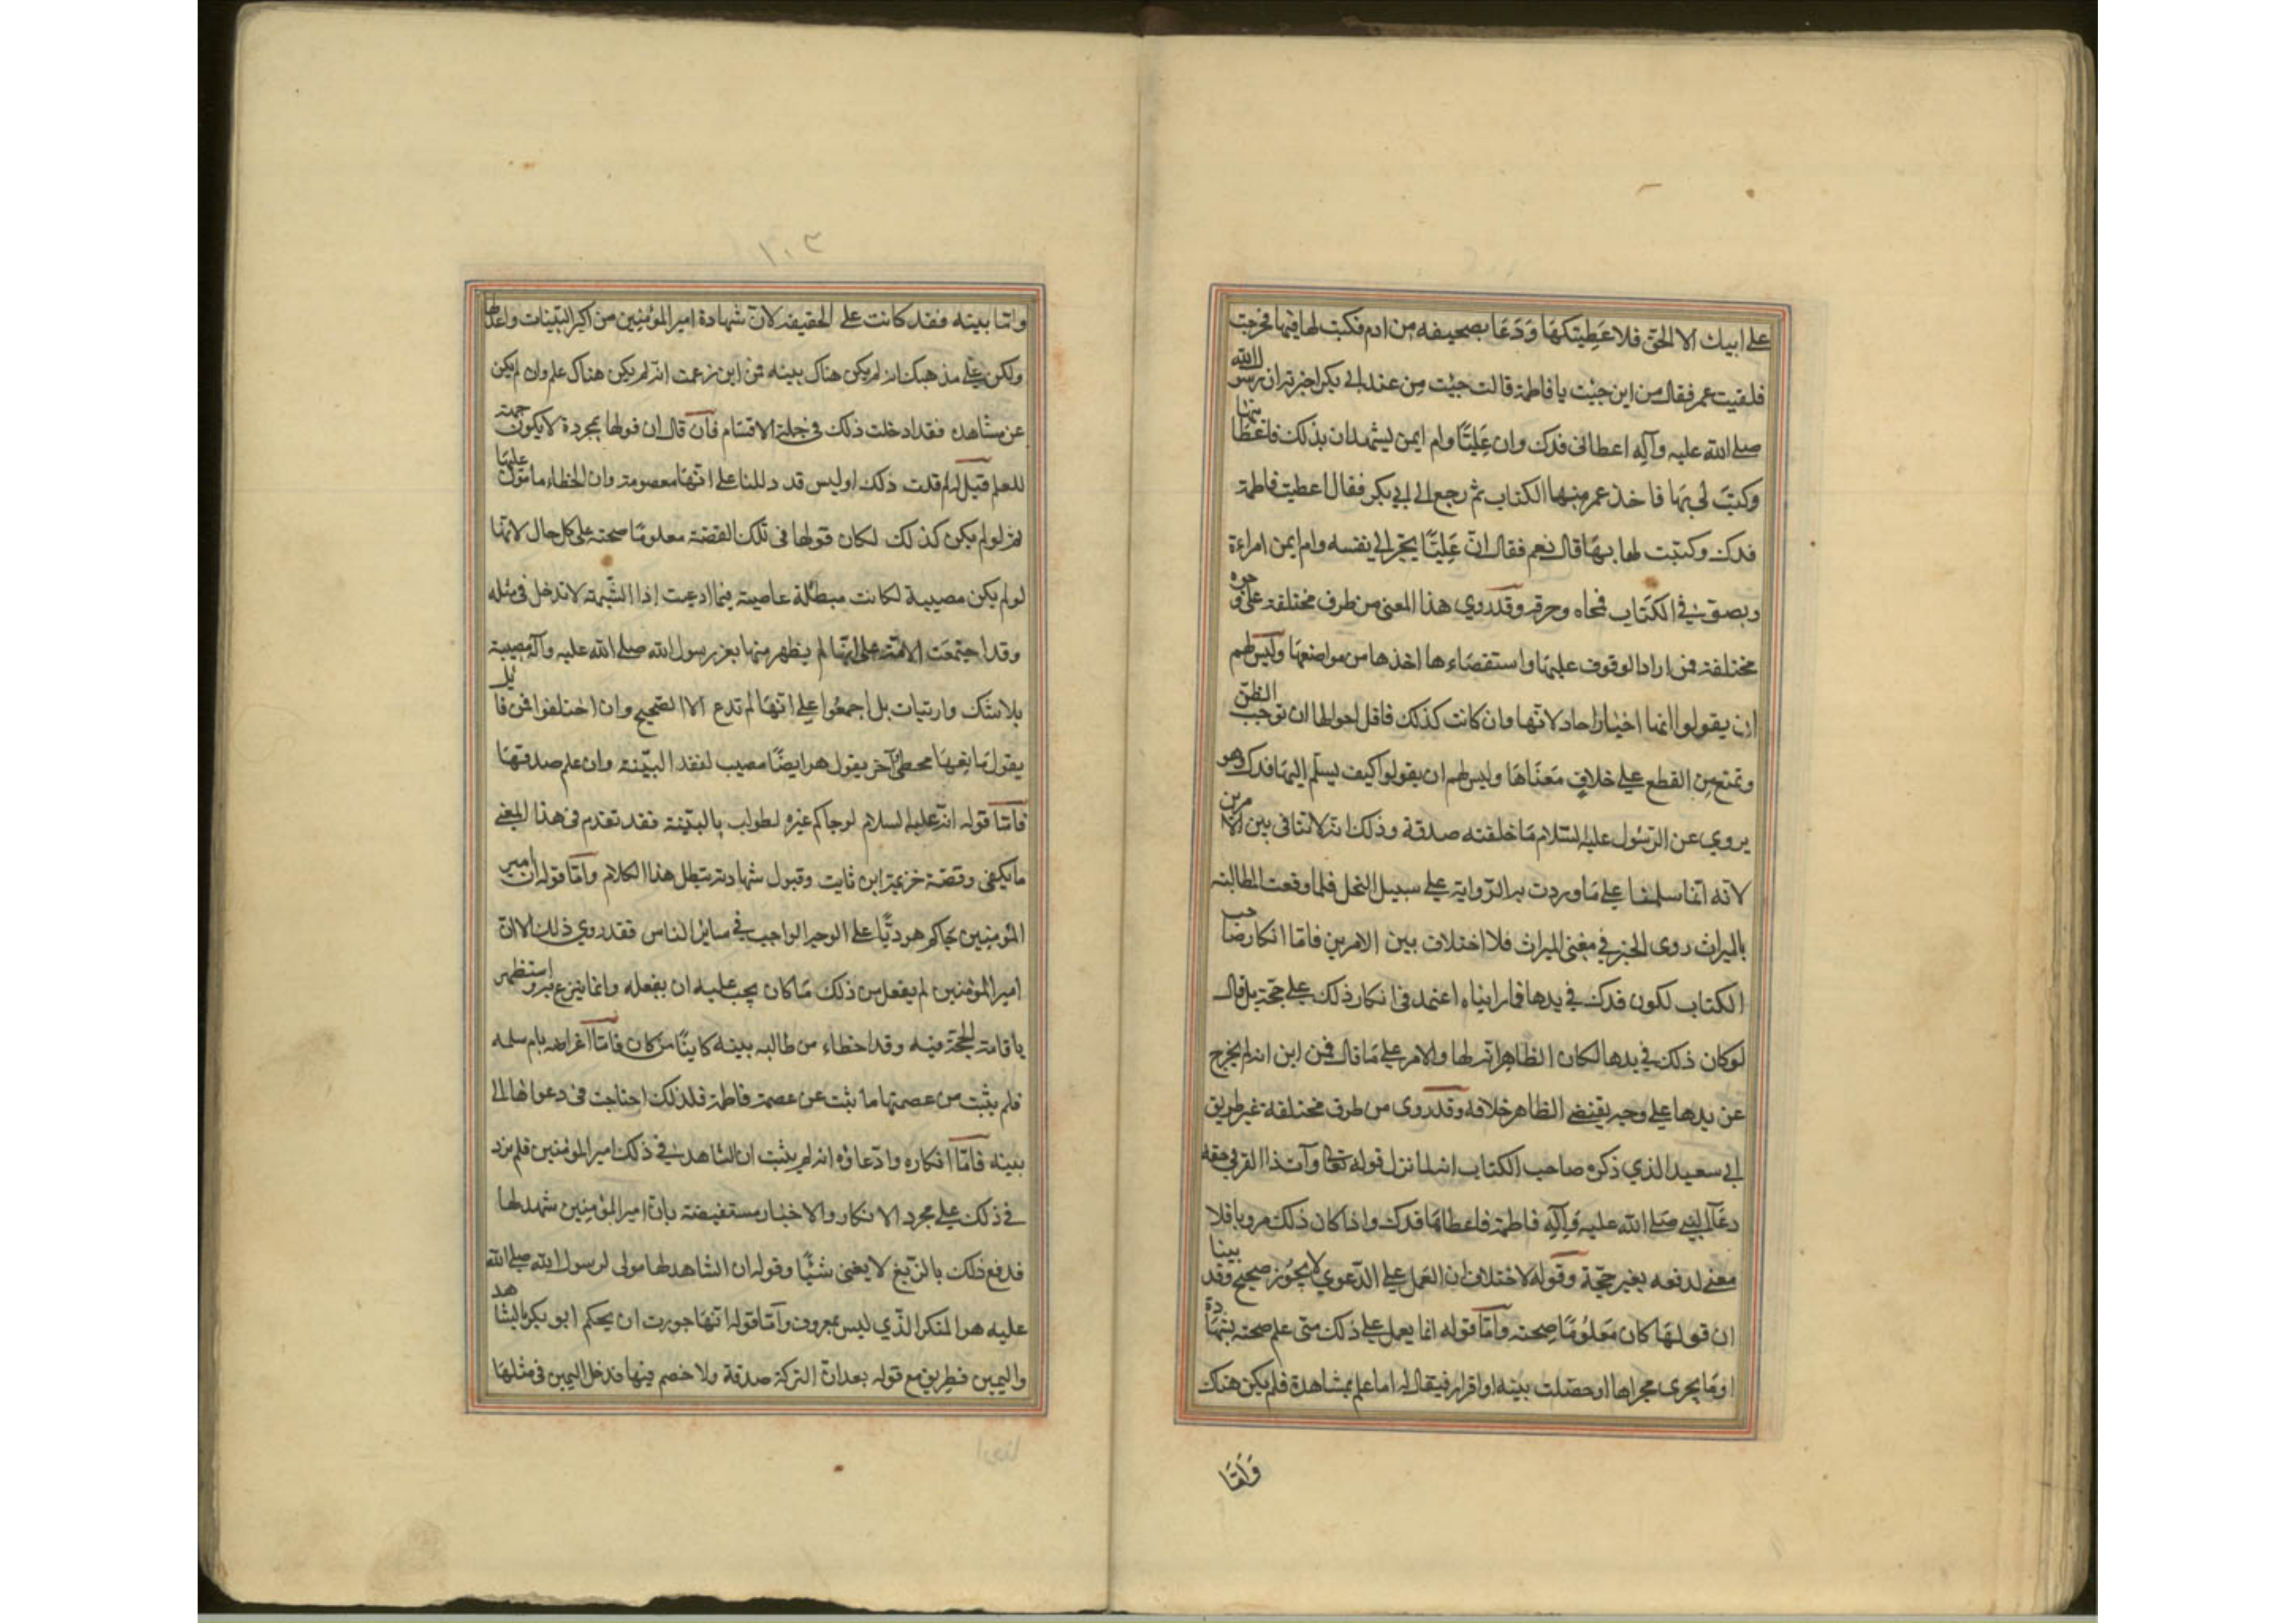 على ابيك الا الحق فلاعطيتكها ودعا بصحيفه من ادم فكتب لها فيها فخرجت
فلقيت عمر فقال من اين جئت يا فاطمة قالت جيت من عند ابي بكر اخبرته ان رسول الله
صلى الله عليه وآله اعطانى فدك وان عليّا وام ايمن يشهدان بذلك فاعطانيها
وكتب لى بها فاخذ عمر منها الكتاب ثم رجع الى ابي بكر فقال اعطيت فاطمة
فدك وكتبت لها بها قال نعم فقال انّ عليّا يجرّ الى نفسه وام ايمن امراءة
وبصق في الكتاب فمحاه وحرقه وقد روي هذا المعنى من طرق مختلفة على وجوه
مختلفة فمن اراد الوقوف عليها واستقصاءها اخذها من مواضعها وليس لهم
ان يقولوا انها اخبار احاد لانها وان كانت كذلك فاقل احوالها ان توجب الظن
وتمنع من القطع على خلاف معناها وليس لهم ان يقولوا كيف يسلم اليها فدك وهو
يروي عن الرسول عليه السلام ما خلفته صدقة وذلك انه لا تنافى بين الامرين
لانه انما سلمها على ما وردت به الرواية على سبيل النحل فلما وقعت المطالبة
بالميراث روى الخبر في معنى الميراث فلا اختلاف بين الامرين فامّا انكار صاحب
الكتاب لكون فدك في يدها فما رايناه اعتمد فى انكار ذلك على حجّة بل قال
لو كان ذلك في يدها لكان الظاهر انه لها والامر على ما قال فمن اين انه لم يخرج
عن يدها على وجه يقتضى الظاهر خلافه وقد روى من طرق مختلفة غير طريق
ابي سعيد الذي ذكره صاحب الكتاب انه لما نزل قوله تعالى وآت ذا القربى حقه
دعا النبي صلى الله عليه وآله فاطمة فاعطاها فدك واذا كان ذلك مرويا فلا
معنى لدفعه بغير حجّة وقوله لا خلاف ان العمل على الدعوي لا يجوز صحيح وقد بينا
ان قولها كان معلومًا صحته وامّا قوله انما يعمل على ذلك متى علم صحته بشهادة
او ما يجرى مجراها او حصلت بينه او اقرار فيقال له اما علم بمشاهدة فلم يكن هناك
وامّا
١٠٣
وامّا بينه فقد كانت على الحقيقه لانّ شهادة امير المؤمنين من اكبر البيّنات واعدلها
ولكن على مذهبك انه لم يكن هناك بينه فمن اين زعمت انه لم يكن هناك علم وان لم يكن
عن مشاهده فقد ادخلت ذلك في جملة الاقسام فان قال ان قولها بمجردة لا يكون جهة
للعلم قيل له لم قلت ذلك اوليس قد دللنا على انّها معصومة وان الخطاء مامون عليها
ثم لو لم يكن كذلك لكان قولها فى تلك القضة معلومًا صحته على كل حال لانها
لو لم يكن مصيبة لكانت مبطلة عاصية فيما ادعت اذ الشبهة لا تدخل في مثله
وقد اجتمعت الامّة على انها لم يظهر منها بعد رسول الله صلى الله عليه وآله معصية
بلا شك وارتياب بل اجمعوا على انّها لم تدع الا الصحيح وان اختلفوا فمن قائل
يقول مانعها مخطئ وآخر يقول هو ايضا مصيب لفقد البيّنة وان علم صدقها
فامّا قوله انّه عليه السلام لو حاكم غيره لطولب بالبيّنة فقد تقدم فى هذا المعنى
ما يكفى وقصّة خزيمة ابن ثابت وقبول شهادته يبطل هذا الكلام وامّا قوله ان امير
المؤمنين حاكم يهوديّا على الوجه الواجب في سائر الناس فقد روي ذلك الا ان
امير المؤمنين لم يفعل من ذلك ما كان يجب عليه ان يفعله وانما تبرع به واستظهر
باقامة الحجّة فيه وقد اخطاء من طالبه ببينه كاينًا من كان فامّا اعتراضه بام سلمه
فلم يثبت من عصمتها ما ثبت عن عصمة فاطمة فلذلك احتاجت فى دعواها الى
بينه فامّا انكاره وادّعاؤه انه لم يثبت ان الشاهد في ذلك امير المؤمنين فلم يزد
في ذلك على مجرد الانكار والاخبار مستفيضة بان امير المؤمنين شهد لها
فدفع ذلك بالزيغ لا يغنى شيئًا وقوله ان الشاهد لها مولى لرسول الله صلى الله
عليه هو المنكر الذي ليس بمعروف وامّا قوله انّها جوزت ان يحكم ابو بكر بالشاهد
واليمين فطريف مع قوله بعد انّ التركة صدقة ولا خصم فيها فدخل اليمين فى مثلها